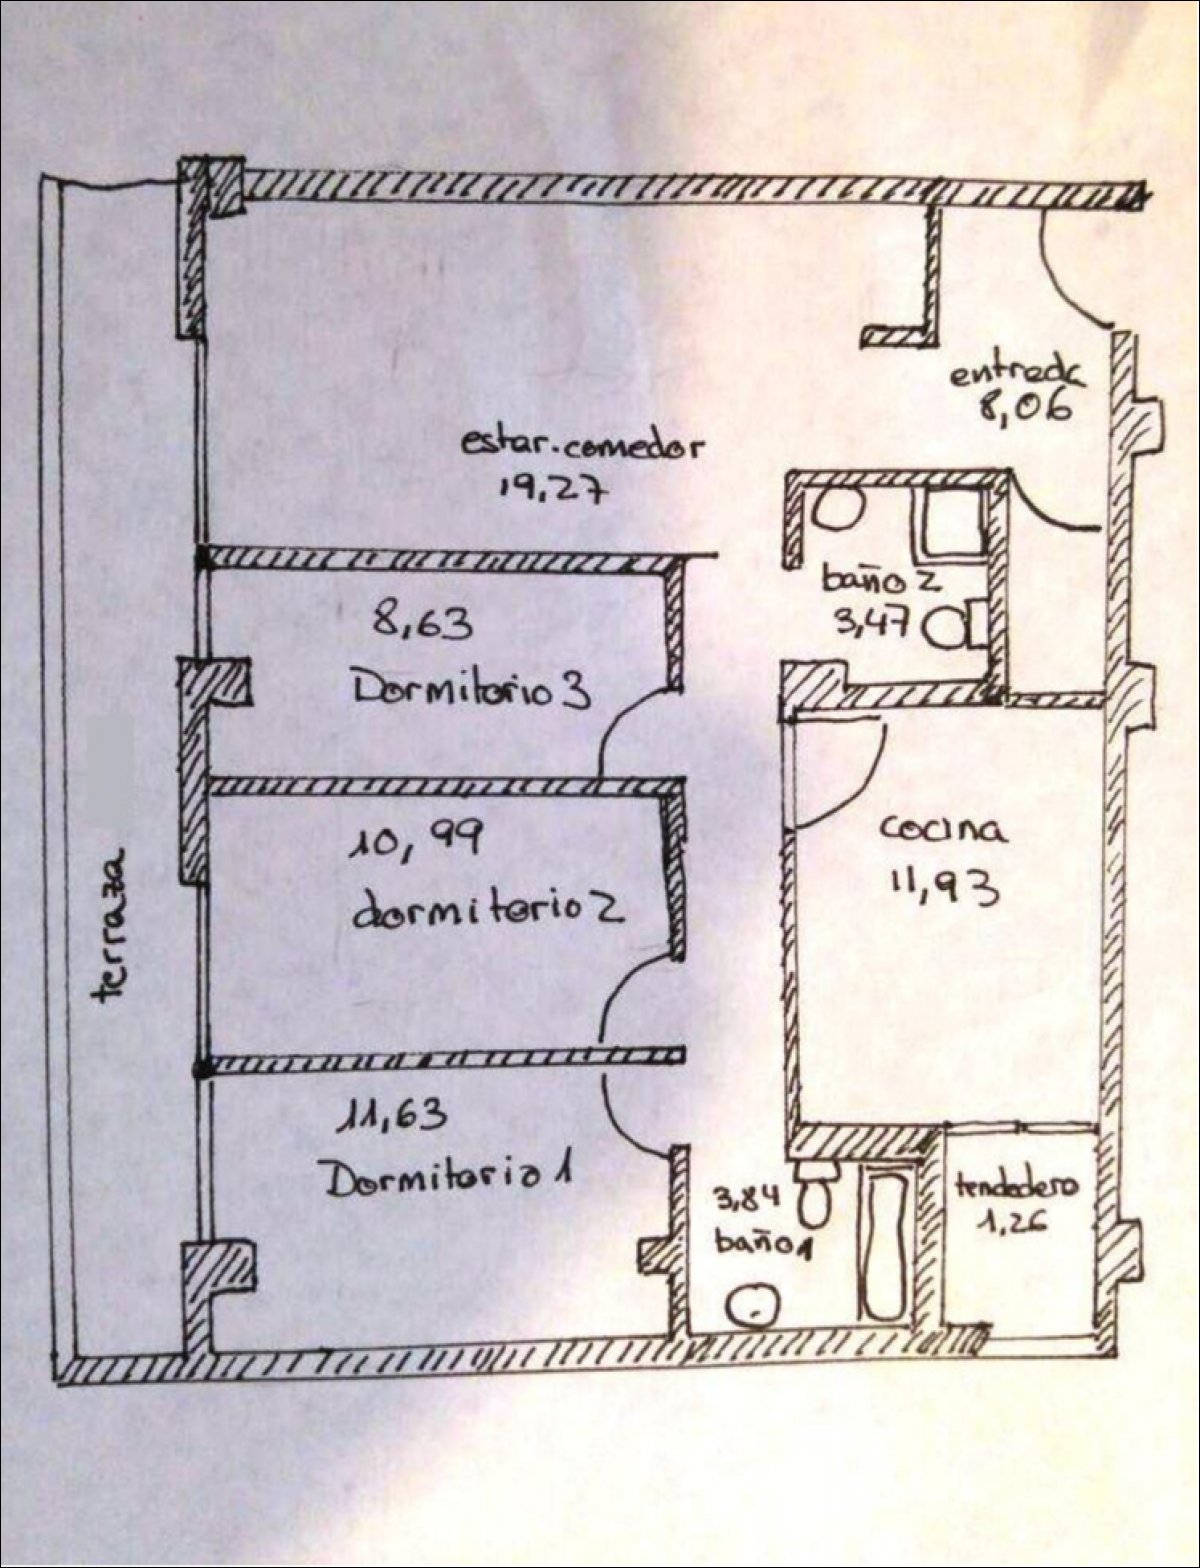 entrada
8,06
estar.comedor
19,27
baño 2
3,47
8,63
Dormitorio 3
cocina
11,93
10,99
dormitorio 2
terraza
11,63
Dormitorio 1
3,84
baño 1
tendedero
1,26